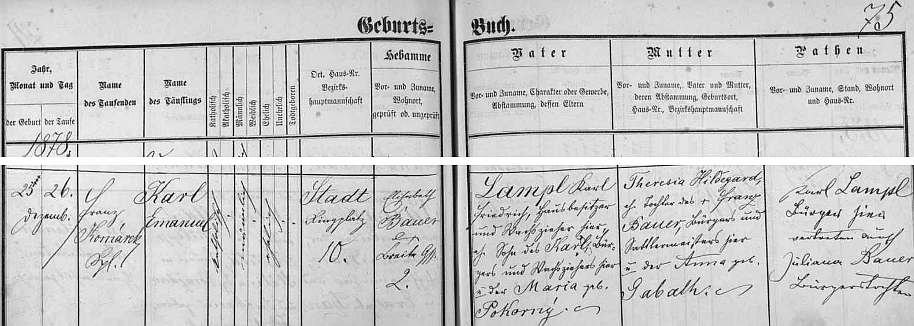 Geburts= Buch.
75
Jahr,
Monat und Tag
der Geburt
der Taufe
Name
des Taufenden
Name
des Täuflings
Katholisch
Akatholisch
Männlich
Weiblich
Ehelich
Unehelich
Todtgeboren
Ort, Haus-Nr.
Bezirks-
hauptmannschaft
Hebamme
Vor- und Zuname,
Wohnort,
geprüft od. ungeprüft
Vater
Vor- und Zuname, Charakter oder Gewerbe,
Abstammung, dessen Eltern
Mutter
Vor- und Zuname, Vater und Mutter,
deren Abstammung, Geburtsort,
Haus-Nr., Bezirkshauptmannschaft
Pathen
Vor- und Zuname, Stand, Wohnort
und Haus-Nr.
1878.
25. 26.
Dezemb.
Franz
Komárek
Karl
Emanuel
katholisch
männlich
ehelich
Stadt
Ringplatz
10.
Elisabeth
Bauer
Breite Gss.
2.
Lampl Karl
Friedrich, Hausbesitzer
und Wachszieher hier,
eh. Sohn des Karl, Bür-
gers und Wachsziehers hier
u. der Maria geb.
Pokorný.
Theresia Hildegard,
eh. Tochter des † Franz
Bauer, Bürgers und
Sattlermeisters hier
u. der Anna geb.
Gabath.
Karl Lampl
Bürger hier
vertreten durch
Juliana Bauer
Bürgerstochter